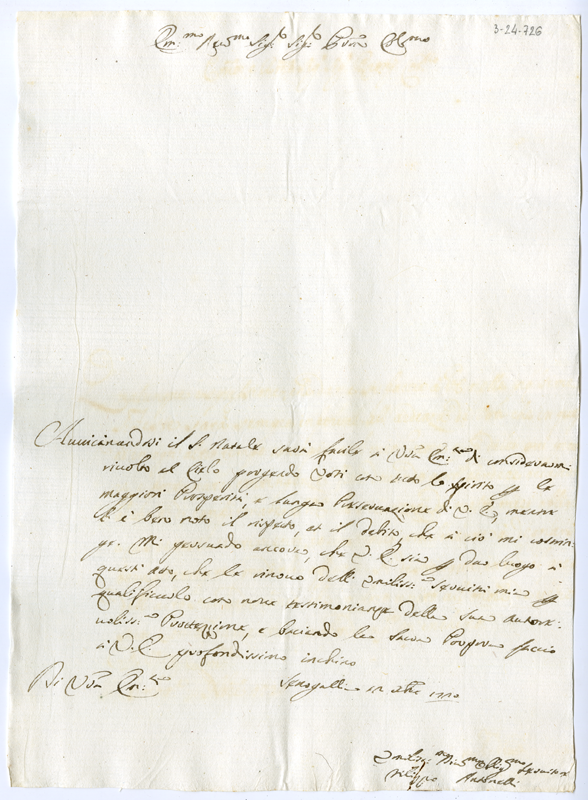 3-24-726
Em:mo Rev:mo Sig:r Sig:r P̃ron Col:mo
Avvicinandosi il S. Natale sarà facile à Vr̃a Em:za di considerarmi
rivolto al Cielo porgendo Voti con tutto lo spirito p le
maggiori Prosperità, e lunga Preservazione di V. E., mentre
l'è bero noto il rispetto, et il debito, che à ciò mi costrin-
ge. Mi persuado ancora, che V. E. sia p dar luogo à
quest'atto, che le rinova dell' Umiliss:a servitù mia p
qualificarlo con nove testimonianze della sua autore-
voliss:a Protezione, e baciando la Sacra Porpora faccio
à V. E. profondissimo inchino
Di Vr̃a Em:za Senogallia 12 Xbre 1720
Umiliss:mo Div:mo Oblig:mo Servitore
Filippo Antonelli